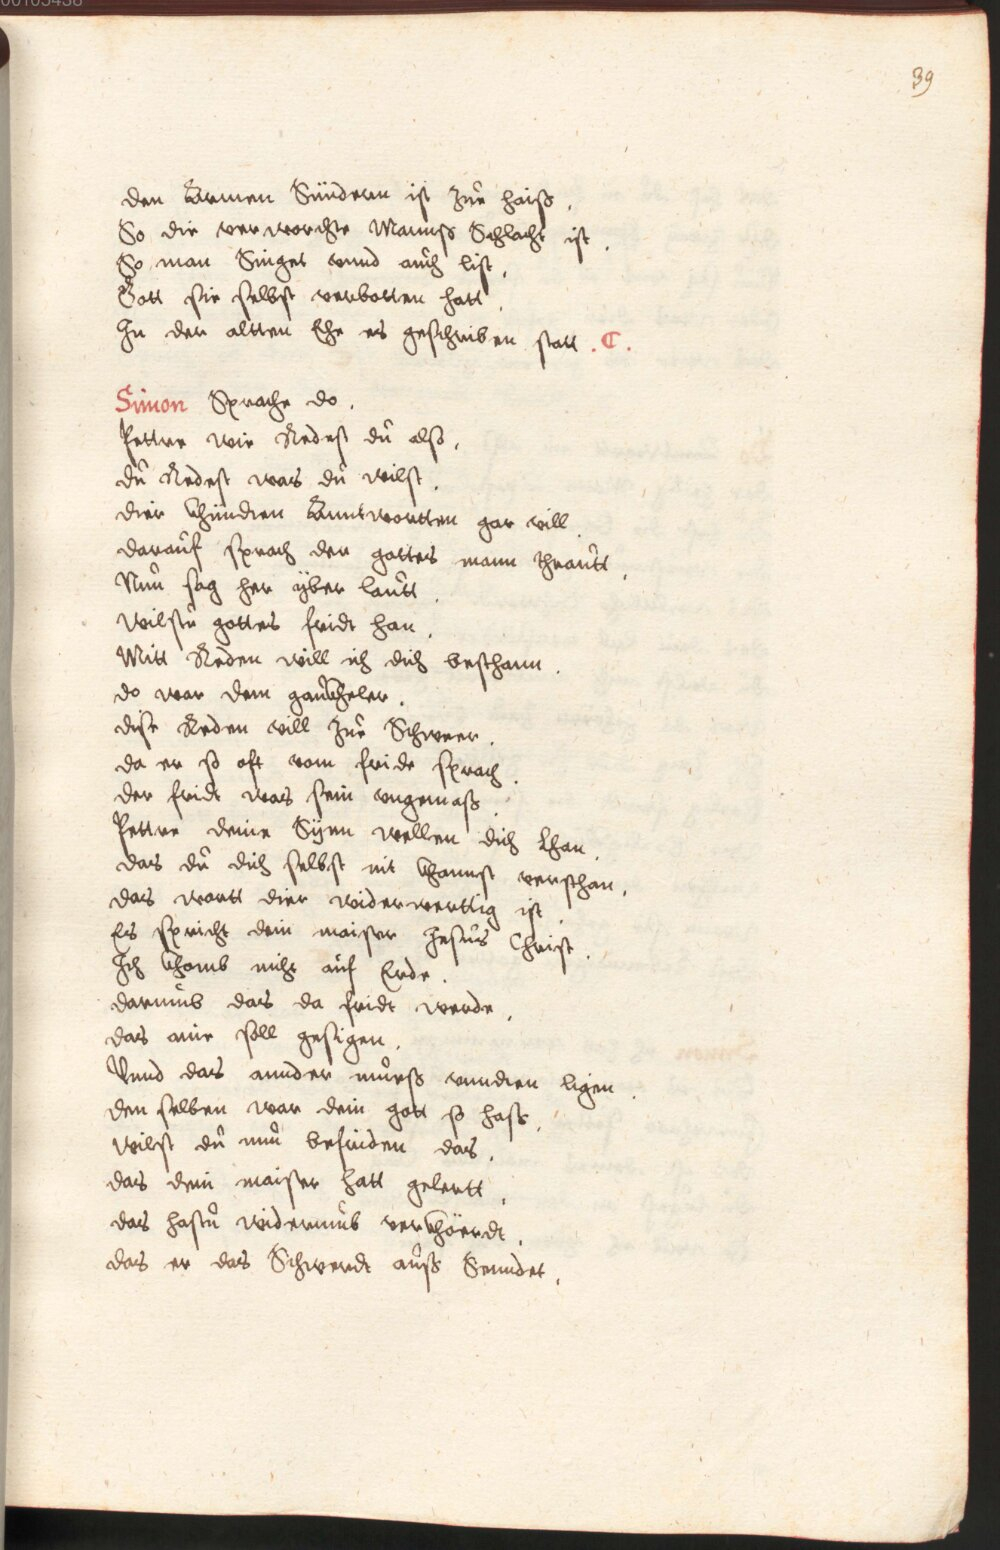 00105438
39
den Armen Sündern ist zue haiß.
So die verworchte Mannß Schlacht ist.
So man Singet vnnd auch list.
Gott sie selbst verbotten hatt.
In der altten Ehe es geschriben statt. C.
Simon Sprache do.
Pettre wie Redest dů alß.
dů Redest was dů wilst.
dier khündten Anntwortten gar vill.
darauf sprach der gottes mann thrautt.
Nůn sag her yber lautt.
wilstu gottes fridt han.
Mitt Reden will ich dich besthann.
do war dem gaukheler.
dise Reden vill zue Schweer.
da er so oft vom fride sprach.
der fridt was sein vngemaß.
Pettre deine Synn wellen dich lhan.
das dů dich selbst nit khannst versthan.
das wortt dier widerwerttig ist.
Es spricht dein maister Jesus Christ.
Ich khomb niht auf Erde.
darumb das da fridt werde.
das aine soll gesigen.
Vnnd das annder mueß vnndten ligen.
den selben war dein gott so haß.
wilst dů nůn befinden das.
das dein maister hatt gelertt.
das hastu widerumb verkhöerdt.
das er das Schwerdt auß Senndet.